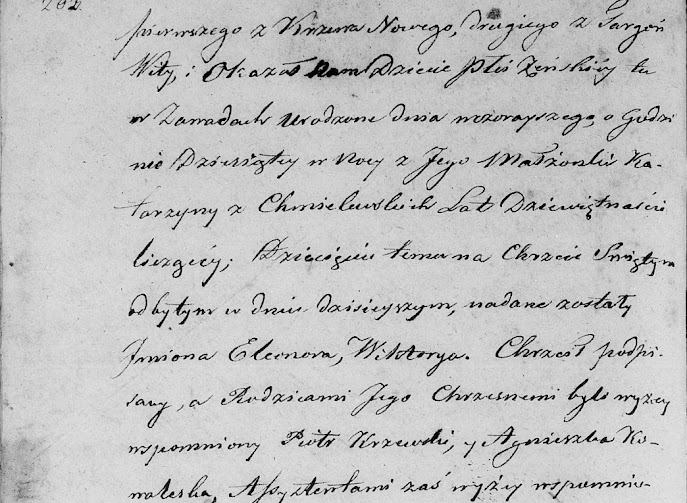 202.
pierwszego z Krzewa Nowego, drugiego z Targoń
Wity, i Okazał nam Dziecie Płci Żeńskiéy tu
w Zawadach urodzone dnia wczorayszego, o Godzi
nie Dziesiątey w Nocy z Jego Małżonki Ka-
tarzyny z Chmielewskich Lat Dziewiętnaście
liczącéy; Dziecięciu temu na Chrzcie Świętym
odbytym w dniu dzisieyszym, nadane zostały
Jmiona Eleonora, Wiktorya. Chrzcił podpi-
sany, a Rodzicami Jego Chrzesnemi byli wyżey
wspomniony Piotr Krzewski, y Agnieszka Ko-
waleska, Assystentami zaś wyżey wspomnio-